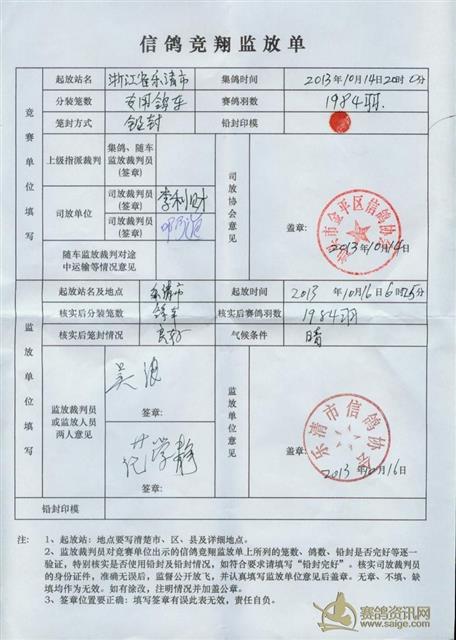 信鸽竞翔监放单
竞赛单位填写
起放站名 浙江省乐清市 集鸽时间 2013年10月14日20时0分
分装笼数 专用鸽车 赛鸽羽数 1984羽.
笼封方式 铅封 铅封印模
上级指派裁判 集鸽、随车监放裁判员(签章)
司放单位 司放裁判员(签章) 李利财
司放裁判员(签章)
随车监放裁判对途中运输等情况意见
司放协会意见
盖章:
市金平区信鸽协会
2013年10月14日
监放单位填写
起放站名及地点 乐清市 起放时间 2013 10月16日6时25分
核实后分装笼数 鸽车 核实后赛鸽羽数 1984羽
核实后笼封情况 完好 气候条件 晴
监放裁判员或监放人员两人意见
吴浪
签章:
范学静
签章:
监放单位意见
盖章:
乐清市信鸽协会
2013年10月16日
铅封印模
注: 1、起放站:地点要写清楚市、区、县及详细地点。
2、监放裁判员对竞赛单位出示的信鸽竞翔监放单上所列的笼数、鸽数、铅封是否完好等逐一
验证,特别核实是否使用铅封及铅封情况,如符合要求请填写“铅封完好”。核实司放裁判员
的身份证件,准确无误后,监督公开放飞,并认真填写监放单位意见后盖章。无章、不填、缺
填均作为无效。如有涂改,注明情况并加盖公章。
3、签章位置要正确:填写签章有误此表无效,责任自负。
赛鸽资讯网
www.saige.com